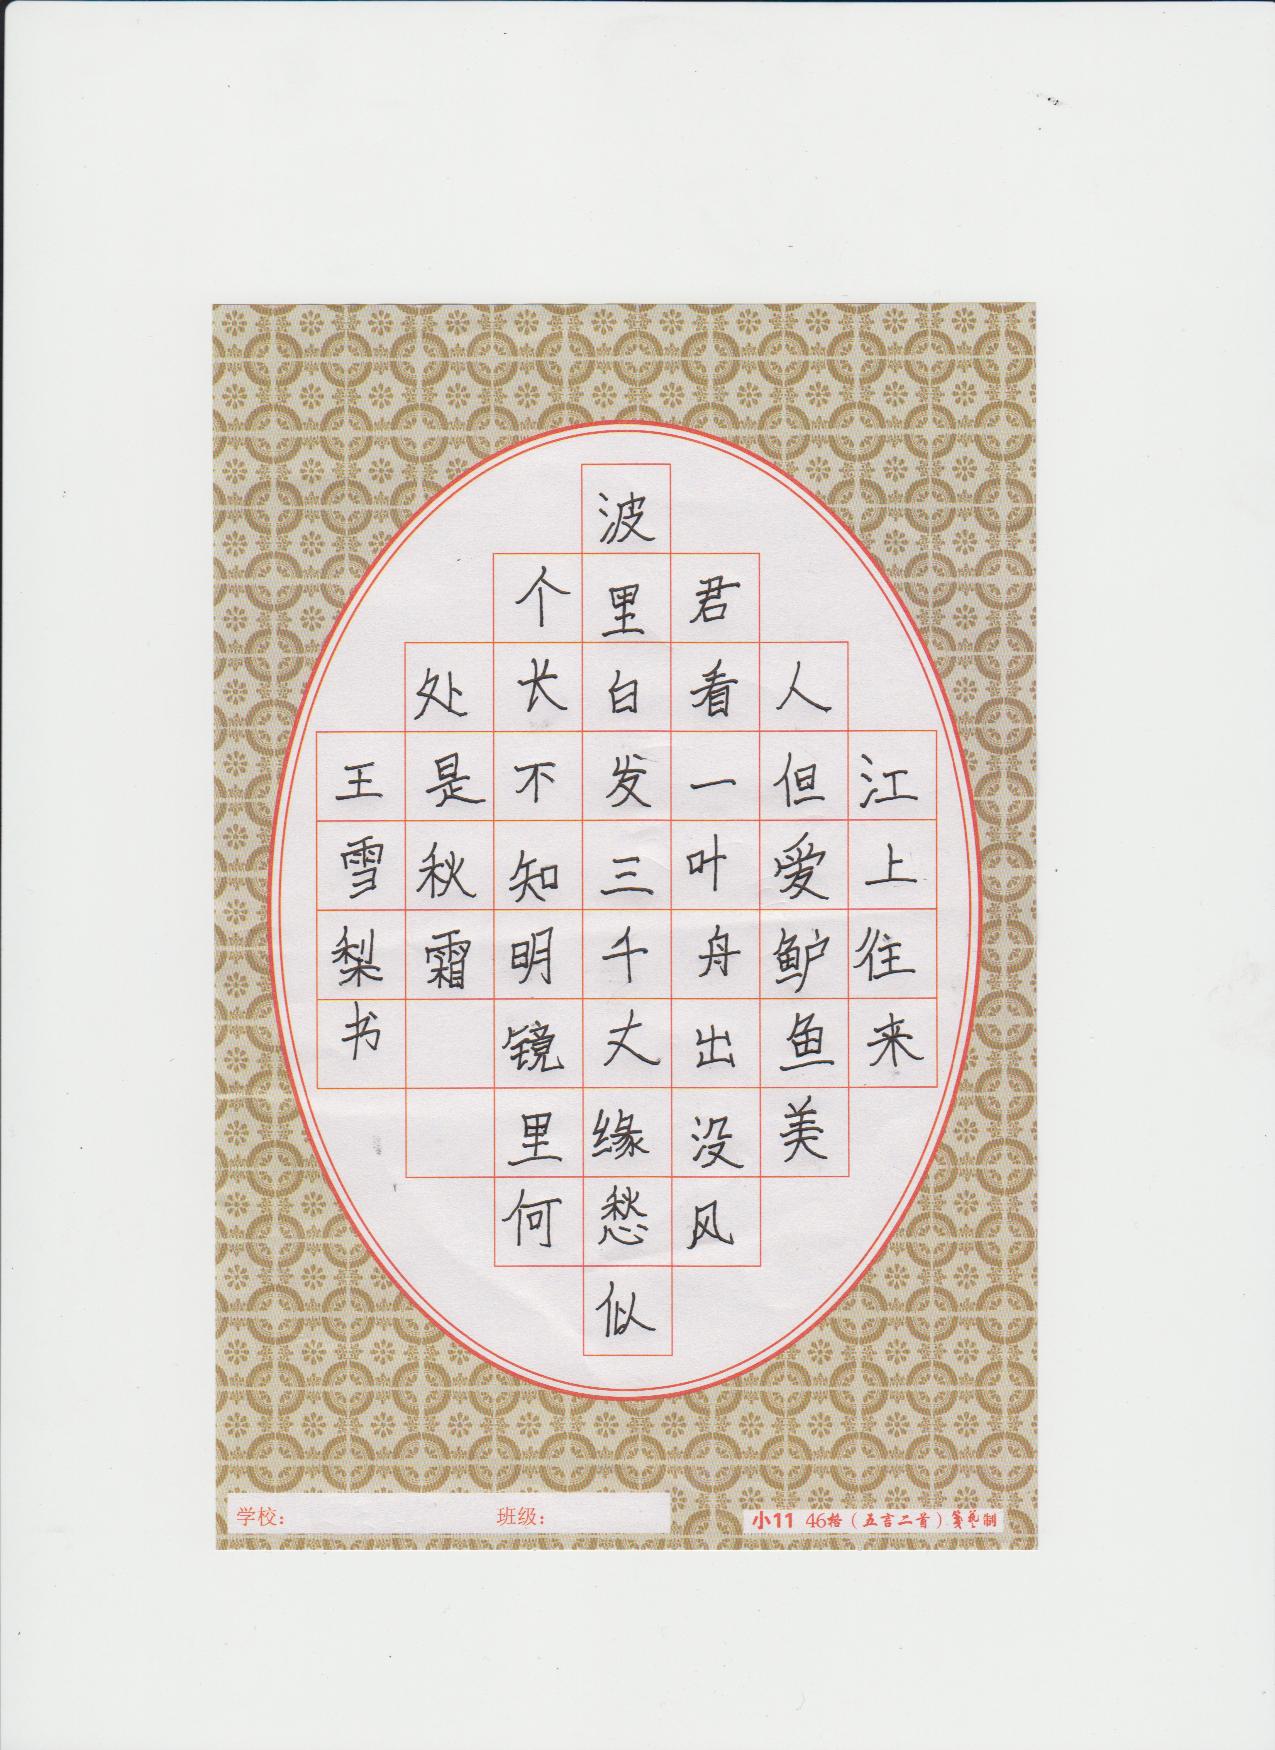 江上往来
人但爱鲈鱼美
君看一叶舟出没风
波里白发三千丈缘愁似
个长不知明镜里何
处是秋霜
王雪梨书
学校：
班级：
小11 46格（五言二首）笺艺制